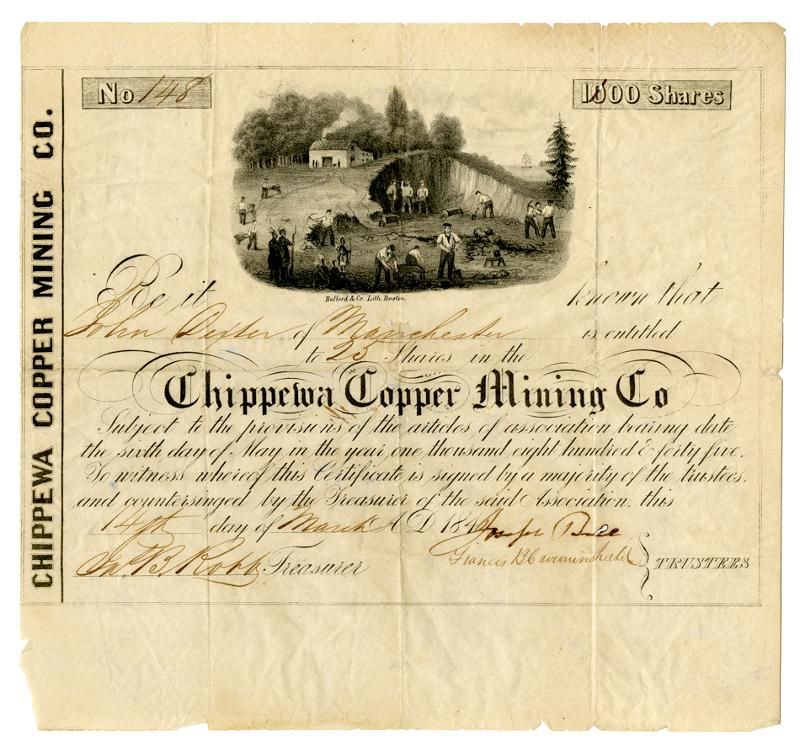 CHIPPEWA COPPER MINING CO.
No 148
1000 Shares
Bufford & Co. Lith. Boston.
Be it known that
John Dexter of Manchester is entitled
to 25 Shares in the
Chippewa Copper Mining Co
Subject to the provisions of the articles of association bearing date
the sixth day of May in the year one thousand eight hundred & forty five.
To witness whereof this Certificate is signed by a majority of the trustees
and countersinged by the Treasurer of the said Association, this
14th day of March A D 184
Joseph
Francis B Crowninshield
B. Robb Treasurer
TRUSTEES